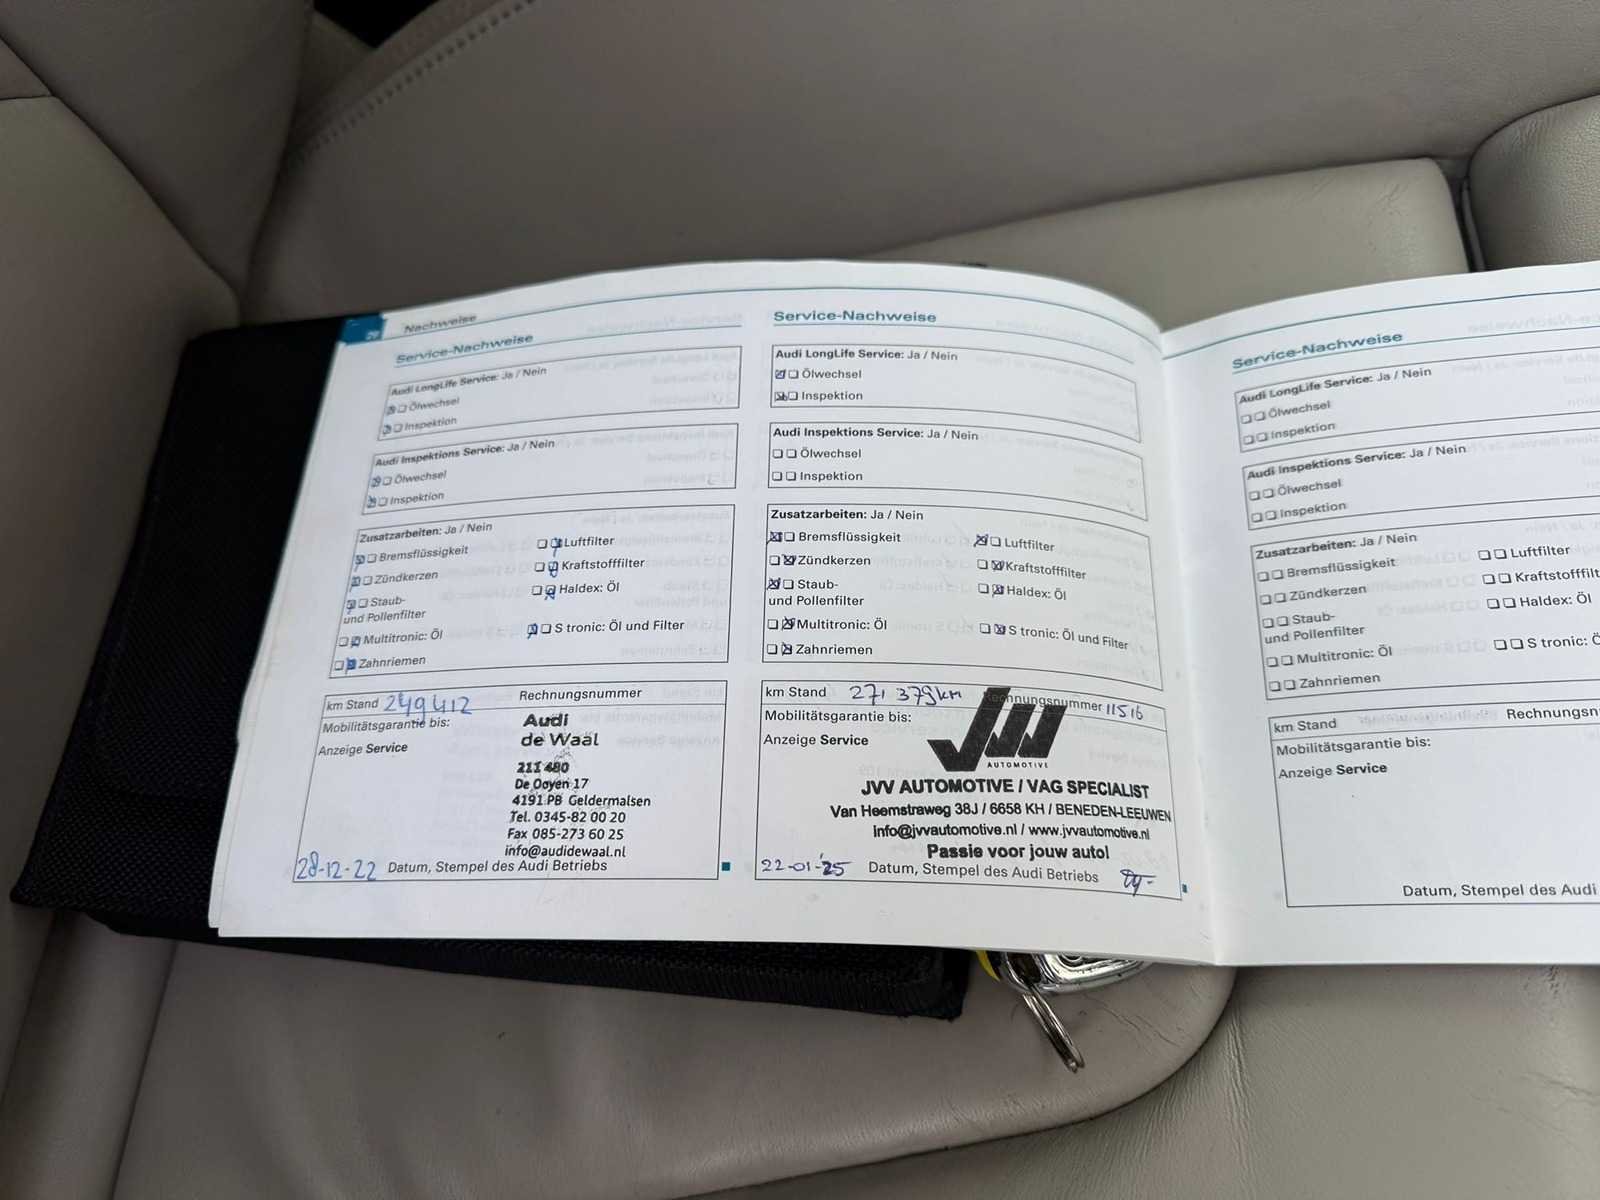 Nachweise
Service-Nachweise
Audi LongLife Service: Ja / Nein
Ölwechsel
Inspektion
Audi Inspektions Service: Ja / Nein
Ölwechsel
Inspektion
Zusatzarbeiten: Ja / Nein
Bremsflüssigkeit
Zündkerzen
Staub-
und Pollenfilter
Multitronic: Öl
Zahnriemen
Luftfilter
Kraftstofffilter
Haldex: Öl
S tronic: Öl und Filter
km Stand 249412
Rechnungsnummer
Mobilitätsgarantie bis:
Anzeige Service
Audi
de Waal
211 480
De Ooyen 17
4191 PB Geldermalsen
Tel. 0345-82 00 20
Fax 085-273 60 25
info@audidewaal.nl
28-12-22 Datum, Stempel des Audi Betriebs
Service-Nachweise
Audi LongLife Service: Ja / Nein
Ölwechsel
Inspektion
Audi Inspektions Service: Ja / Nein
Ölwechsel
Inspektion
Zusatzarbeiten: Ja / Nein
Bremsflüssigkeit
Zündkerzen
Staub-
und Pollenfilter
Multitronic: Öl
Zahnriemen
Luftfilter
Kraftstofffilter
Haldex: Öl
S tronic: Öl und Filter
km Stand 271 379km
Rechnungsnummer 11516
Mobilitätsgarantie bis:
Anzeige Service
AUTOMOTIVE
JVV AUTOMOTIVE / VAG SPECIALIST
Van Heemstraweg 38J / 6658 KH / BENEDEN-LEEUWEN
info@jvvautomotive.nl / www.jvvautomotive.nl
Passie voor jouw auto!
22-01-'25 Datum, Stempel des Audi Betriebs
Service-Nachweise
Audi LongLife Service: Ja / Nein
Ölwechsel
Inspektion
Audi Inspektions Service: Ja / Nein
Ölwechsel
Inspektion
Zusatzarbeiten: Ja / Nein
Bremsflüssigkeit
Zündkerzen
Staub-
und Pollenfilter
Multitronic: Öl
Zahnriemen
Luftfilter
Kraftstofffilt
Haldex: Öl
S tronic: Ö
km Stand
Rechnungsn
Mobilitätsgarantie bis:
Anzeige Service
Datum, Stempel des Audi